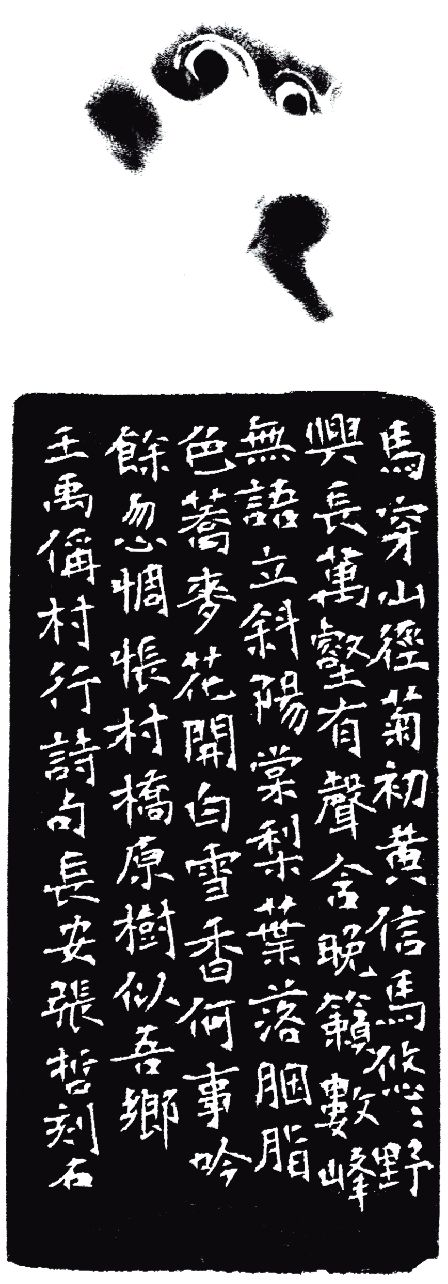 馬穿山徑菊初黃信馬悠〻野
興長萬壑有聲含晚籟數峰
無語立斜陽棠梨葉落胭脂
色蕎麥花開白雪香何事吟
餘忽惆悵村橋原樹似吾鄉
王禹偁村行詩句長安張哲刻石